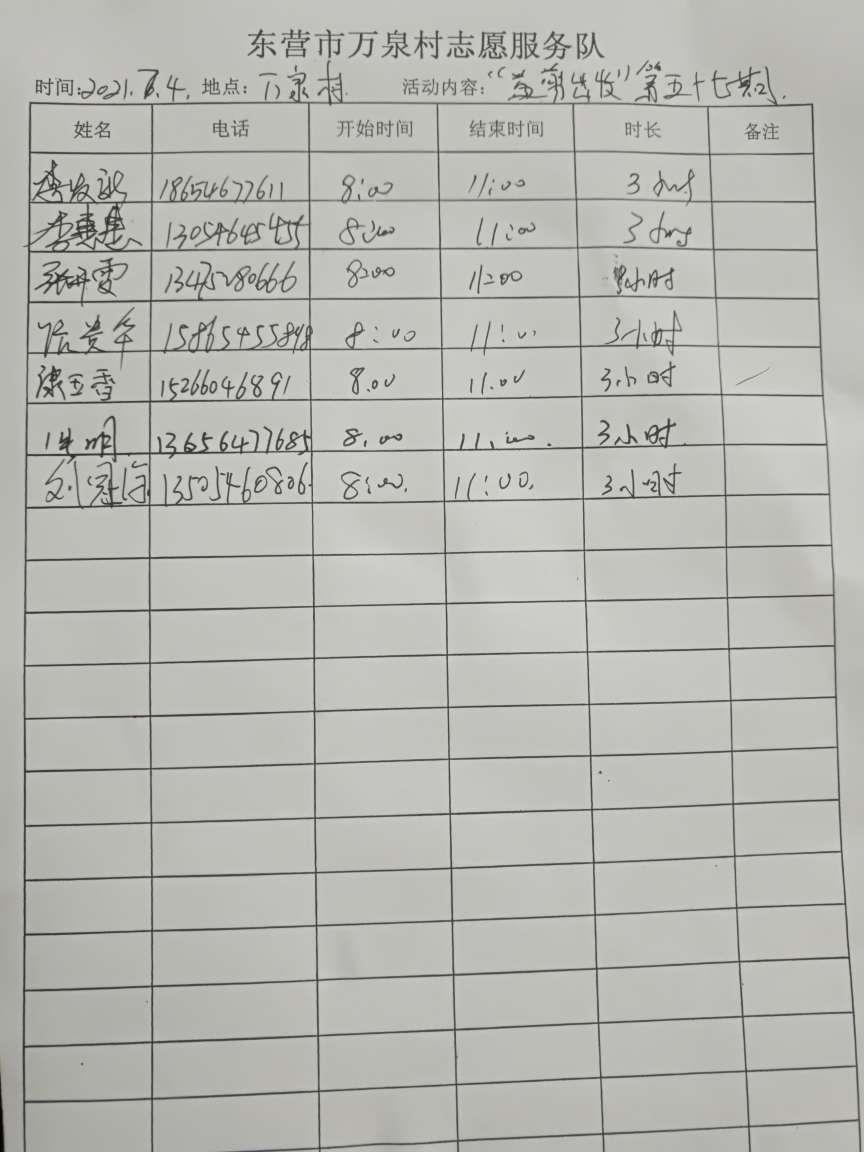 东营市万泉村志愿服务队
时间:2021. .4. 地点:万泉村 活动内容:"益剪出发"第五十七期.
姓名 电话 开始时间 结束时间 时长 备注
李 18654677611 8:00 11:00 3小时
李惠 13054645455 8:00 11:00 3小时
雪 13475280666 8:00 11:00 小时
贵 15865455848 8:00 11:00 3小时
玉香 15266046891 8.00 11.00 3小时
明 13656477685 8:00 11:00. 3小时.
刘冠 13505460806. 8:00. 11:00. 3小时